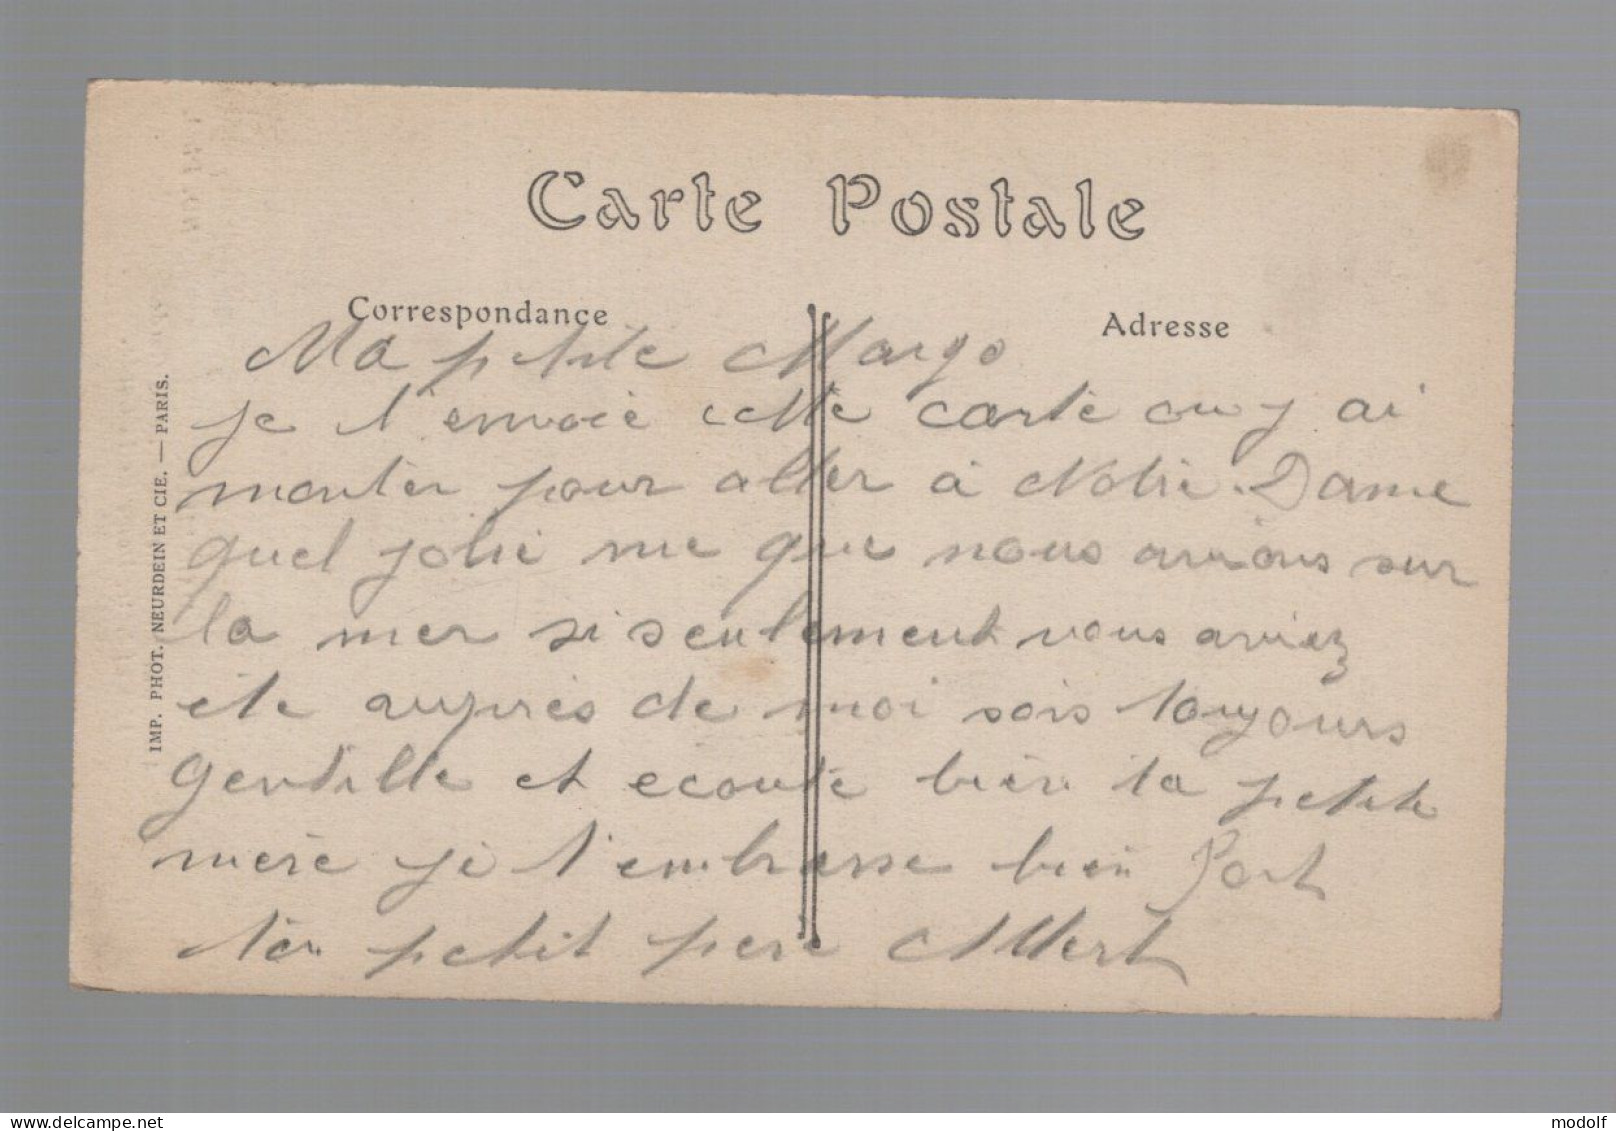 Carte Postale
Correspondance
Adresse
IMP. PHOT. NEURDEIN ET CIE. — PARIS.
Ma petite Margo
je t'envoie cette carte ou j ai
monter pour aller à Notre-Dame
quel jolie vue que nous avions sur
la mer si seulement vous aviez
éte auprès de moi sois toujours
gentille et ecoute bien ta petite
mère je t'embrasse bien fort
ton petit père Albert
www.delcampe.net
modolf